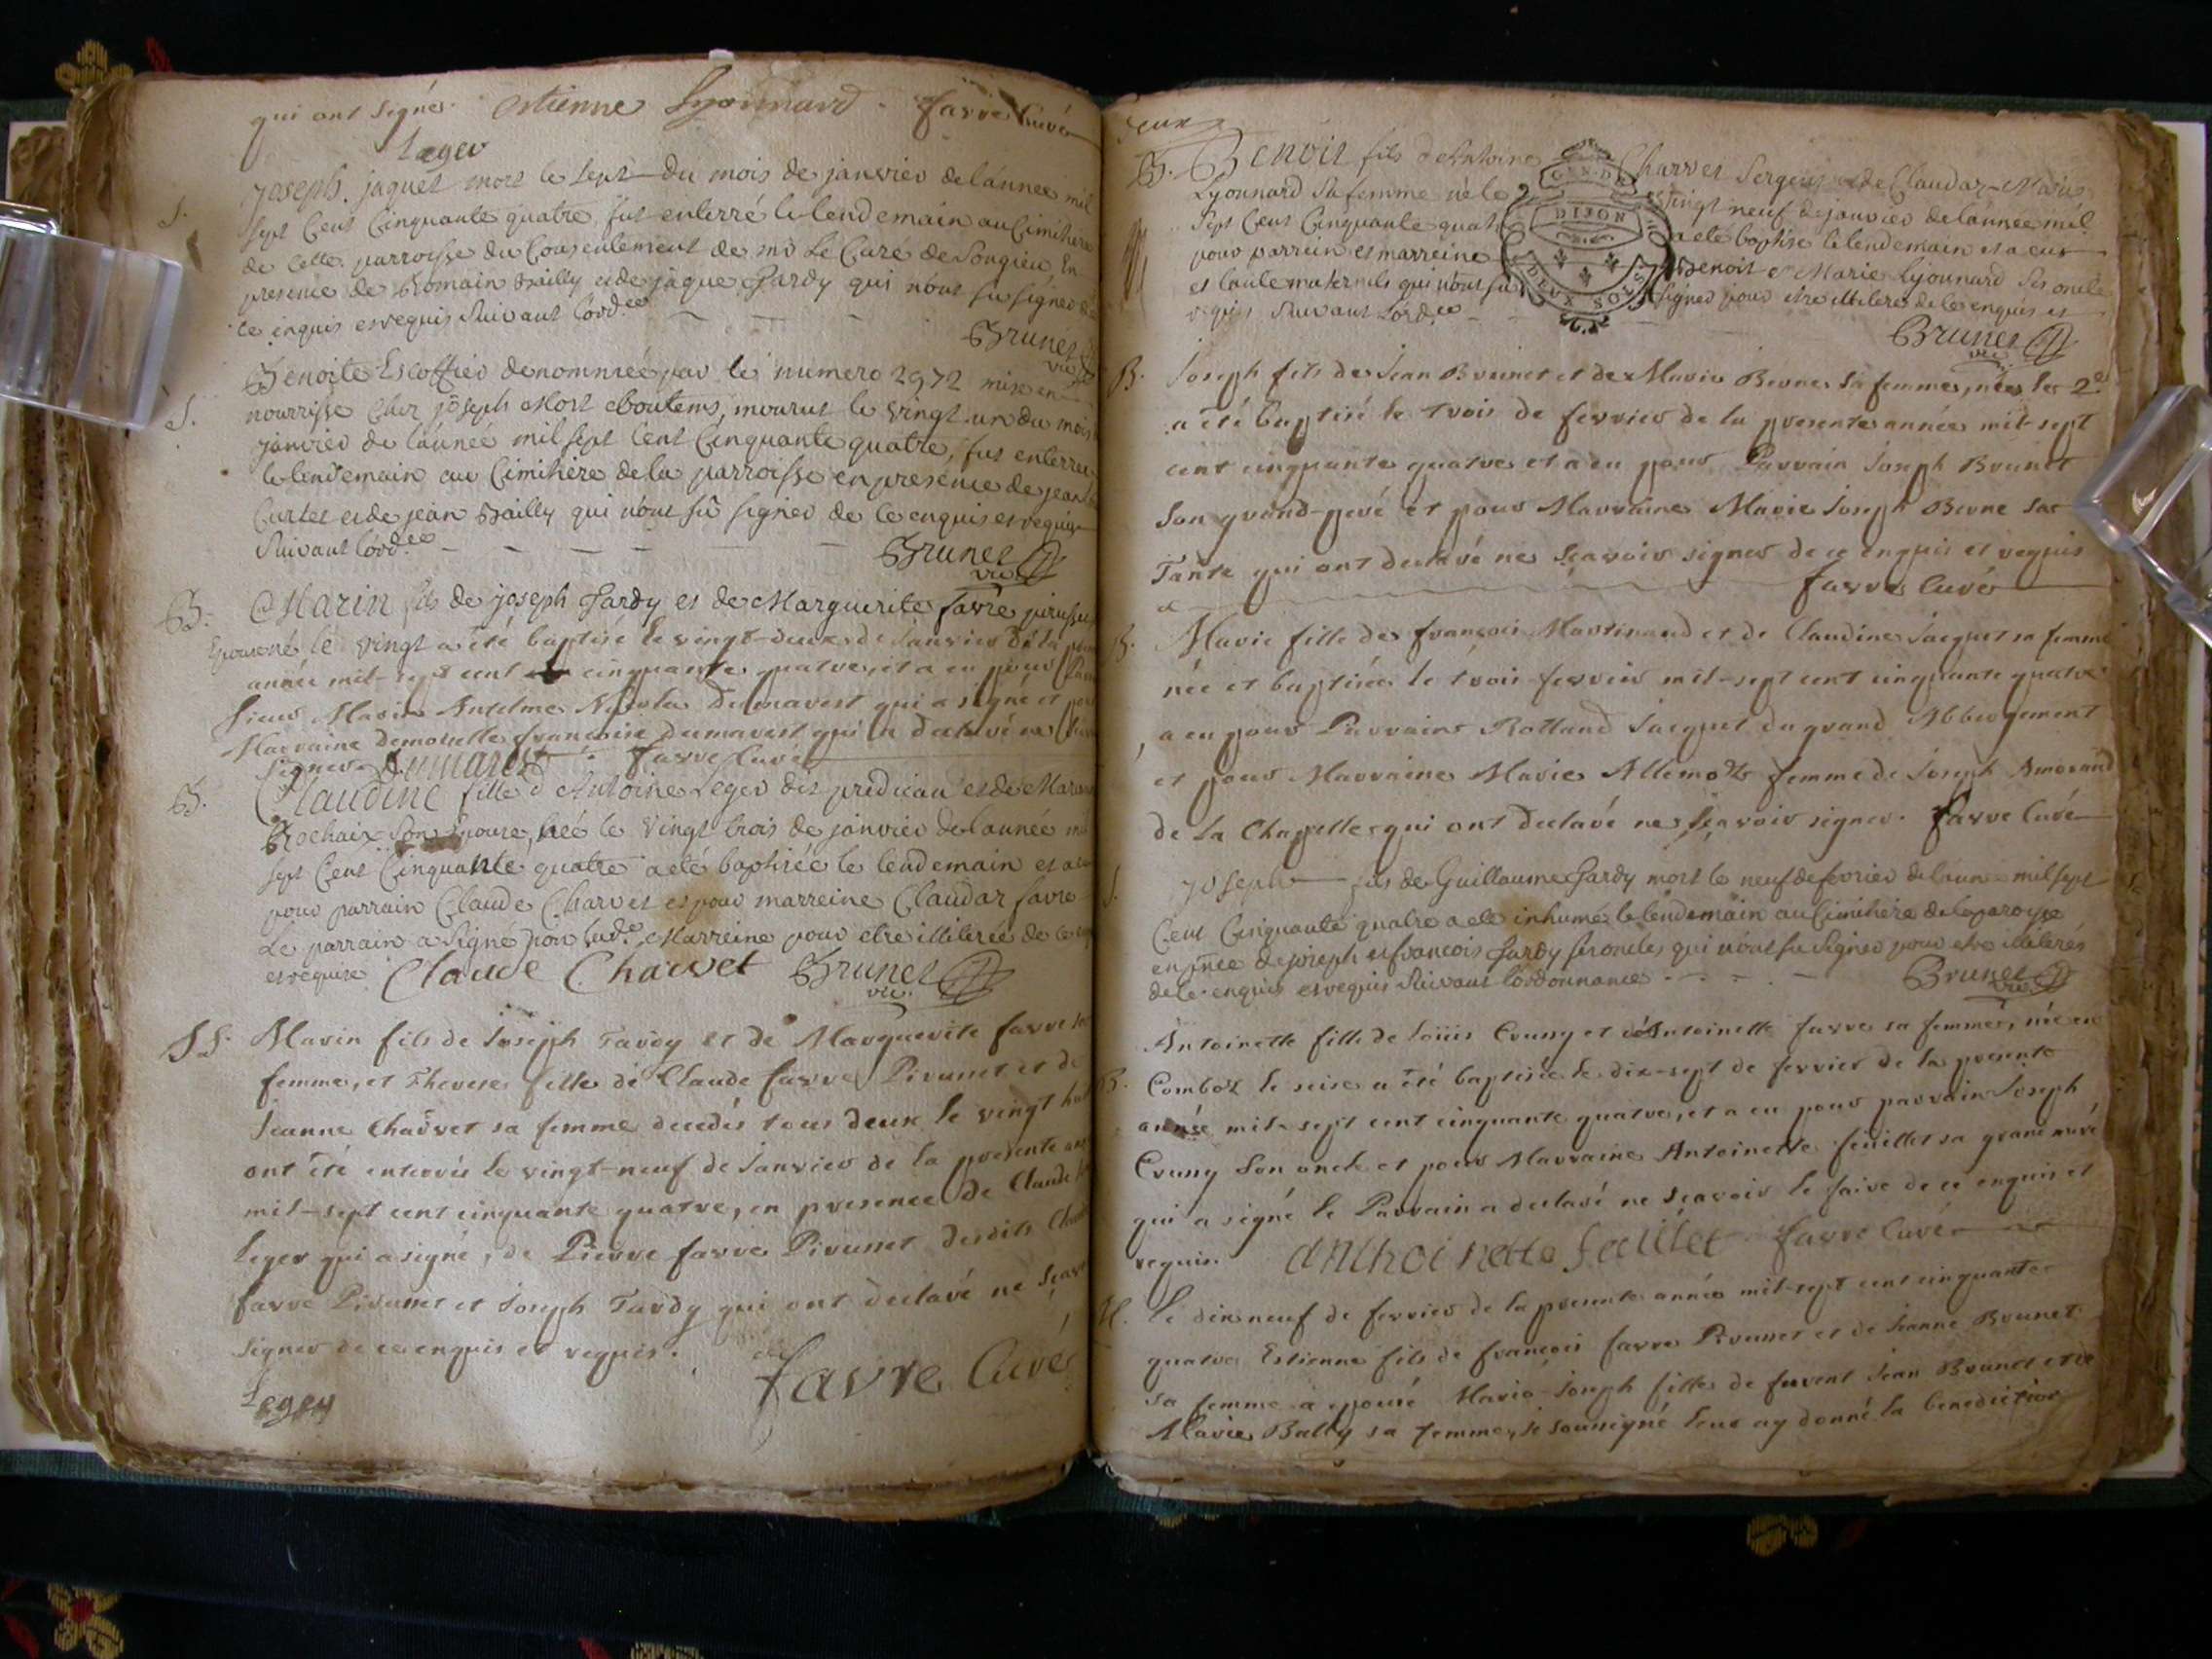 qui ont signés. Estienne Lyonnard. favre Curé
Leger
S. joseph jaquet mort le sept du mois de janvier de lannee mil
sept Cent Cinquante quatre, fut enterré le lendemain au Cimihere
de cette parroisse du Consentement de mr Le Curé de Songieu, En
presence de Romain Bailly et de jaque Tardy qui n'ont su signer de
ce enquis et requis suivant lord.ce
Brunet vic
S. Benoite Escoffier denommée par le numero 2972 mise en
nourrisse Cher joseph Mort eboutems, mourut le vingt un du mois
janvier de lannée mil sept Cent Cinquante quatre, fut enterrée
le lendemain au Cimihere de la parroisse en presence de jean
Curtet et de jean Bailly qui n'ont su signer de ce enquis et requis
suivant lord.ce
Brunet vic
B. Marin fils de joseph Tardy et de Marguerite favre
né le vingt a été baptisé le vingt-deux de Janvier de la
année mil-sept cent cinquante quatre, et a eu pour
sieur Marin Antelme Nicolas Dumarest qui a signé et pour
Marraine Demoiselle francoise Dumarest qui a declaré ne
signer. Dumarest favre Curé
B. Claudine fille d'Antoine Leger dit prediceau et de
Rochaix son Epouse, née le vingt trois de janvier de lannée mil
sept Cent Cinquante quatre a eté baptisée le lendemain et a eu
pour parrain Claude Charvet et pour marreine Claudaz favre
Le parrain a signé non lad.e Marreine pour etre illiterée de ce
et requise Claude Charvet Brunet vic.
SS. Marin fils de Joseph Tardy et de Marguerite favre sa
femme, et Therese fille de Claude favre Pirunet et de
Jeanne Charvet sa femme decedés tous deux le vingt huit
ont été enterrés le vingt-neuf de Janvier de la presente
mil-sept cent cinquante quatre, en presence de Claude
Leger qui a signé, de Pierre favre Pirunet desdits Claude
favre Pirunet et Joseph Tardy qui ont declaré ne
signer de ce enquis et requis.
Leger favre Curé
B. Benoit fils d'Antoine Charvet Sergent et de Claudaz-Marie
Lyonnard sa femme né le vingt neuf de janvier de lannée mil
sept Cent Cinquante quatre a eté baptisé le lendemain et a eu
pour parrein et marreine Benoit et Marie Lyonnard ses oncle
et tante maternels qui n'ont su signer pour etre illiterés de ce enquis et
requis suivant lord.ce
Brunet vic
B. Joseph fils de Jean Brunet et de Marie Berne sa femme, né le 2e
a été baptisé le trois de fevrier de la presente année mil-sept
cent cinquante quatre et a eu pour Parrain Joseph Brunet
son grand-peré et pour Marraine Marie Joseph Berne sa
Tante qui ont declaré ne sçavoir signer de ce enquis et requis
favre Curé
B. Marie fille de françois Martinaud et de Claudine Jacquet sa femme
née et baptisée le trois fevrier mil-sept cent cinquante quatre
a eu pour Parrain Rolland Jacquet du grand Abbergement
et pour Marraine Marie Allemoz femme de Joseph
de la Chapelle qui ont declaré ne sçavoir signer. favre Curé
S. joseph fils de Guillaume Tardy mort le neuf de fevrier de lannee mil sept
Cent Cinquante quatre a eté inhumé le lendemain au Cimihere de la paroisse
en pnce de joseph et francois Tardy ses oncles qui n'ont su signer pour etre illiterés
de ce enquis et requis suivant lordonnance
Brunet vic
B. Antoinette fille de Loüis Cruny et d'Antoinette favre sa femme, née en
Comboz le seise a été baptisée le dix-sept de fevrier de la presente
année mil-sept cent cinquante quatre, et a eu pour parrain Joseph
Cruny son oncle et pour Marraine Antoinette feuillet sa grand meré
qui a signé le Parrain a declaré ne sçavoir le faire de ce enquis et
requis. anthoinette feuillet favre Curé
M. le dix neuf de fevrier de la presente année mil-sept cent cinquante
quatre Estienne fils de françois favre Pirunet et de Jeanne Brunet
sa femme a epousé Marie-Joseph fille de Jean Brunet et de
Marie Bally sa femme, je soussigné leur ay donné la benediction
GEN. DE
DIJON
DEUX SOLS